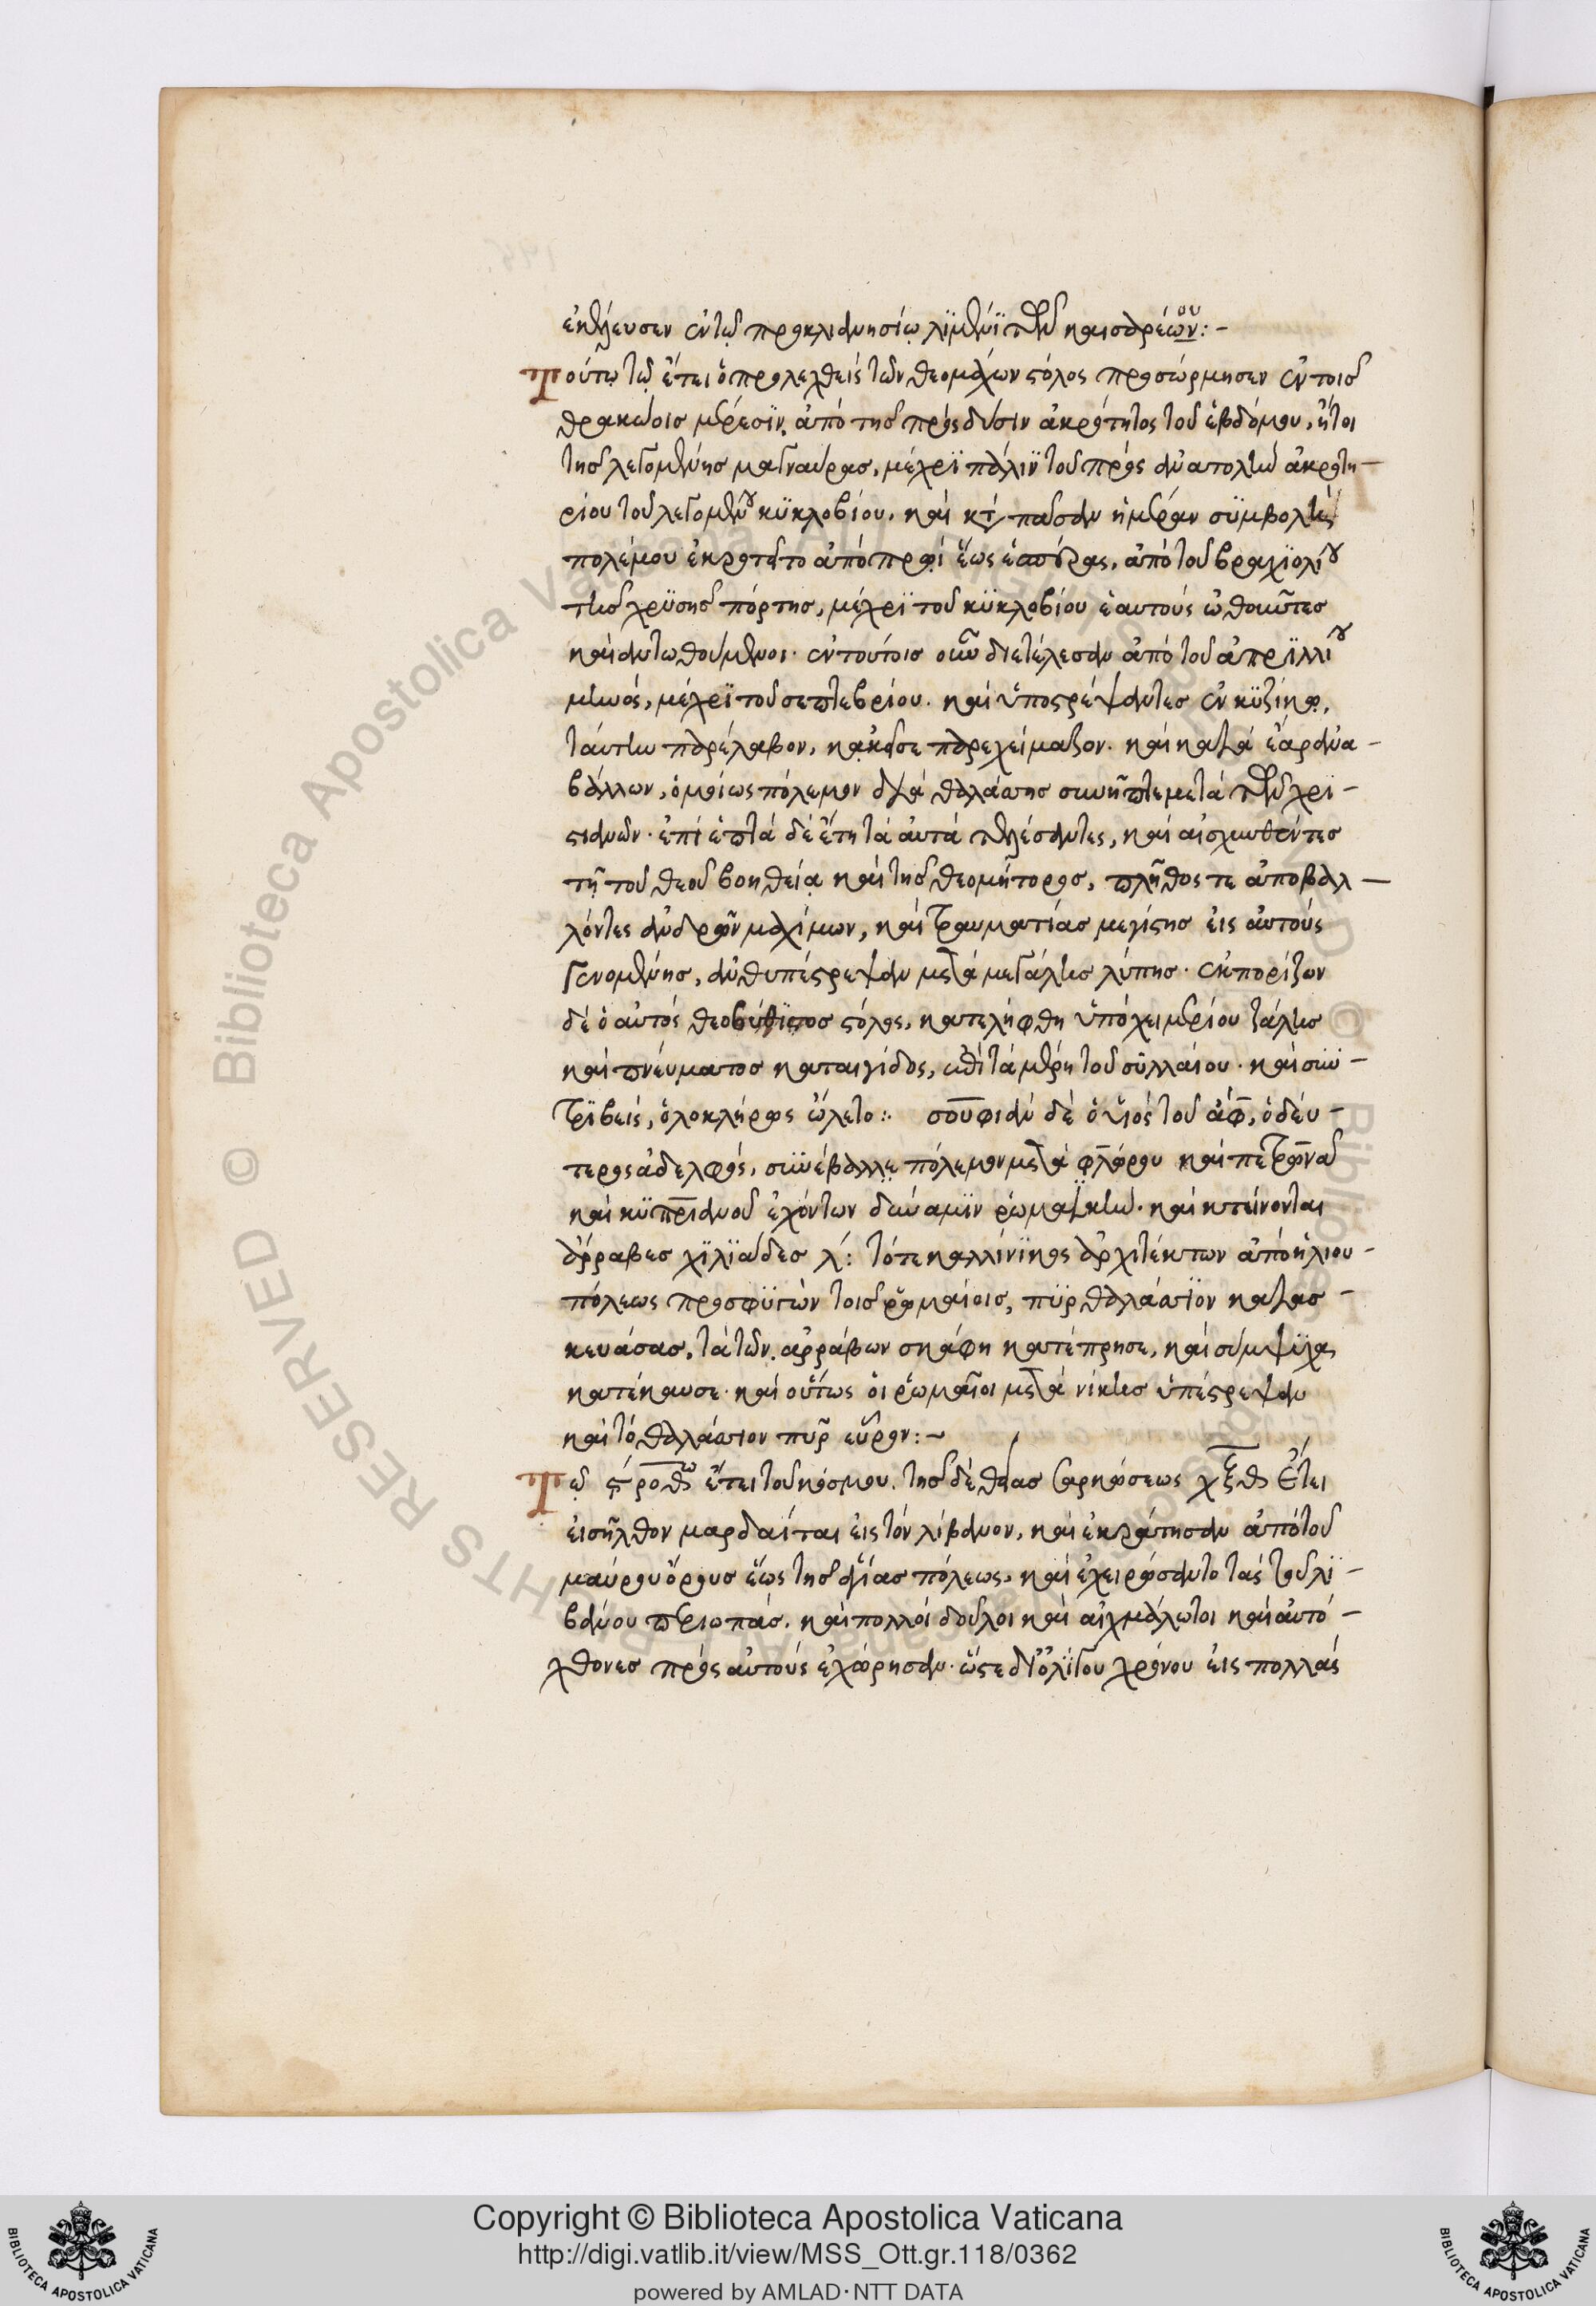 ἐκέλευσεν ἐν τῷ προκλιανησίῳ λϊμένϊ τῶν καισαρείου:-
Τούτῳ τῷ ἔτει ὁ προλεχθεὶς τῶν θεομάχων στόλος προσώρμησεν ἐν τοῖς
θρακώοις μέρεσϊν. ἀπὸ τῆς πρὸς δύσιν ἀκρότητος τοῦ ἑβδόμου, ἤτοι
τῆς λεγομένης μαγναύρας, μέχρϊ πάλϊν τοῦ πρὸς ἀνατολὴν ἀκρωτη-
ρίου τοῦ λεγομένου κϋκλοβίου. καὶ κατὰ πᾶσαν ἡμέραν σϋμβολὴς
πολέμου ἐκροτεῖτο ἀπὸ πρωὶ ἕως ἑσπέρας, ἀπὸ τοῦ βραχϊολίου
τῆς χρϋσῆς πόρτης, μέχρϊ τοῦ κϋκλοβίου ἑαυτοὺς ὠθοῦντες
καὶ ἀντωθούμενοι. ἐν τούτοις οὖν διετέλεσαν ἀπὸ τοῦ ἀπρϊλλίου
μηνός, μέχρϊ τοῦ σεπτεβρίου. καὶ ὑποστρέψαντες ἐν κϋζίκῳ,
ταύτην παρέλαβον, κἀκεῖσε παρεχείμαζον. καὶ κατὰ ἔαρ ἀνα-
βάλλων, ὁμοίως πόλεμον διὰ θαλάσσης συνῆπτε μετὰ τῶν χρϊ-
στιανῶν. ἐπὶ ἑπτὰ δὲ ἔτη τὰ αὐτὰ τελέσαντες, καὶ αἰσχυνθέντες
τῇ τοῦ θεοῦ βοηθείᾳ καὶ τῆς θεομήτορος, πλῆθος τε ἀποβαλ-
λόντες ἀνδρῶν μαχίμων, καὶ τραυματίας μεγίστης εἰς αὐτοὺς
γενομένης, ἀνθυπέστρεψαν μετὰ μεγάλης λύπης. ἐκπορίζων
δὲ ὁ αὐτὸς θεοβύθϊστος στόλος, κατελήφθη ὑπὸ χειμερίου ζάλης
καὶ πνεύματος καταιγίδος, ἐπὶ τὰ μέρη τοῦ σϋλλαίου. καὶ συν-
τρϊβεὶς, ὁλοκλήρως ὤλετο: σουφιὰν δὲ ὁ υἱὸς τοῦ ἀφ, ὁ δεύ-
τερος ἀδελφός, συνέβαλλε πόλεμον μετὰ φλώρου καὶ πετρωνᾶ
καὶ κϋπριανοῦ ἐχόντων δύναμϊν ῥωμαϊκὴν. καὶ κτείνονται
ἄρραβες χϊλϊάδες λ΄: τότε καλλίνϊκος ἀρχιτέκτων ἀπὸ ἡλιου-
πόλεως προσφϋγὼν τοῖς ῥωμαίοις, πῦρ θαλάσσϊον κατασ-
κευάσας, τὰ τῶν ἀρράβων σκάφη κατέπρησε, καὶ σύμψϋχα
κατέκαυσε. καὶ οὕτως οἱ ῥωμαῖοι μετὰ νίκης ὑπέστρεψαν
καὶ τὸ θαλάσσιον πῦρ εὗρον:~
Τῷ ϛροθω ἔτει τοῦ κόσμου. τῆς δὲ θείας σαρκώσεως χξθ ἔτει
εἰσῆλθον μαρδαίται εἰς τὸν λίβανον, καὶ ἐκράτησαν ἀπὸ τοῦ
μαύρου ὄρους ἕως τῆς ἁγίας πόλεως. καὶ ἐχειρώσαντο τὰς τοῦ λϊ-
βάνου περιωπάς. καὶ πολλοὶ δοῦλοι καὶ αἰχμάλωτοι καὶ αὐτό-
χθονες πρὸς αὐτοὺς ἐχώρησαν. ὥστε δι' ὀλίγου χρόνου εἰς πολλὰς
Copyright © Biblioteca Apostolica Vaticana
http://digi.vatlib.it/view/MSS_Ott.gr.118/0362
powered by AMLAD·NTT DATA